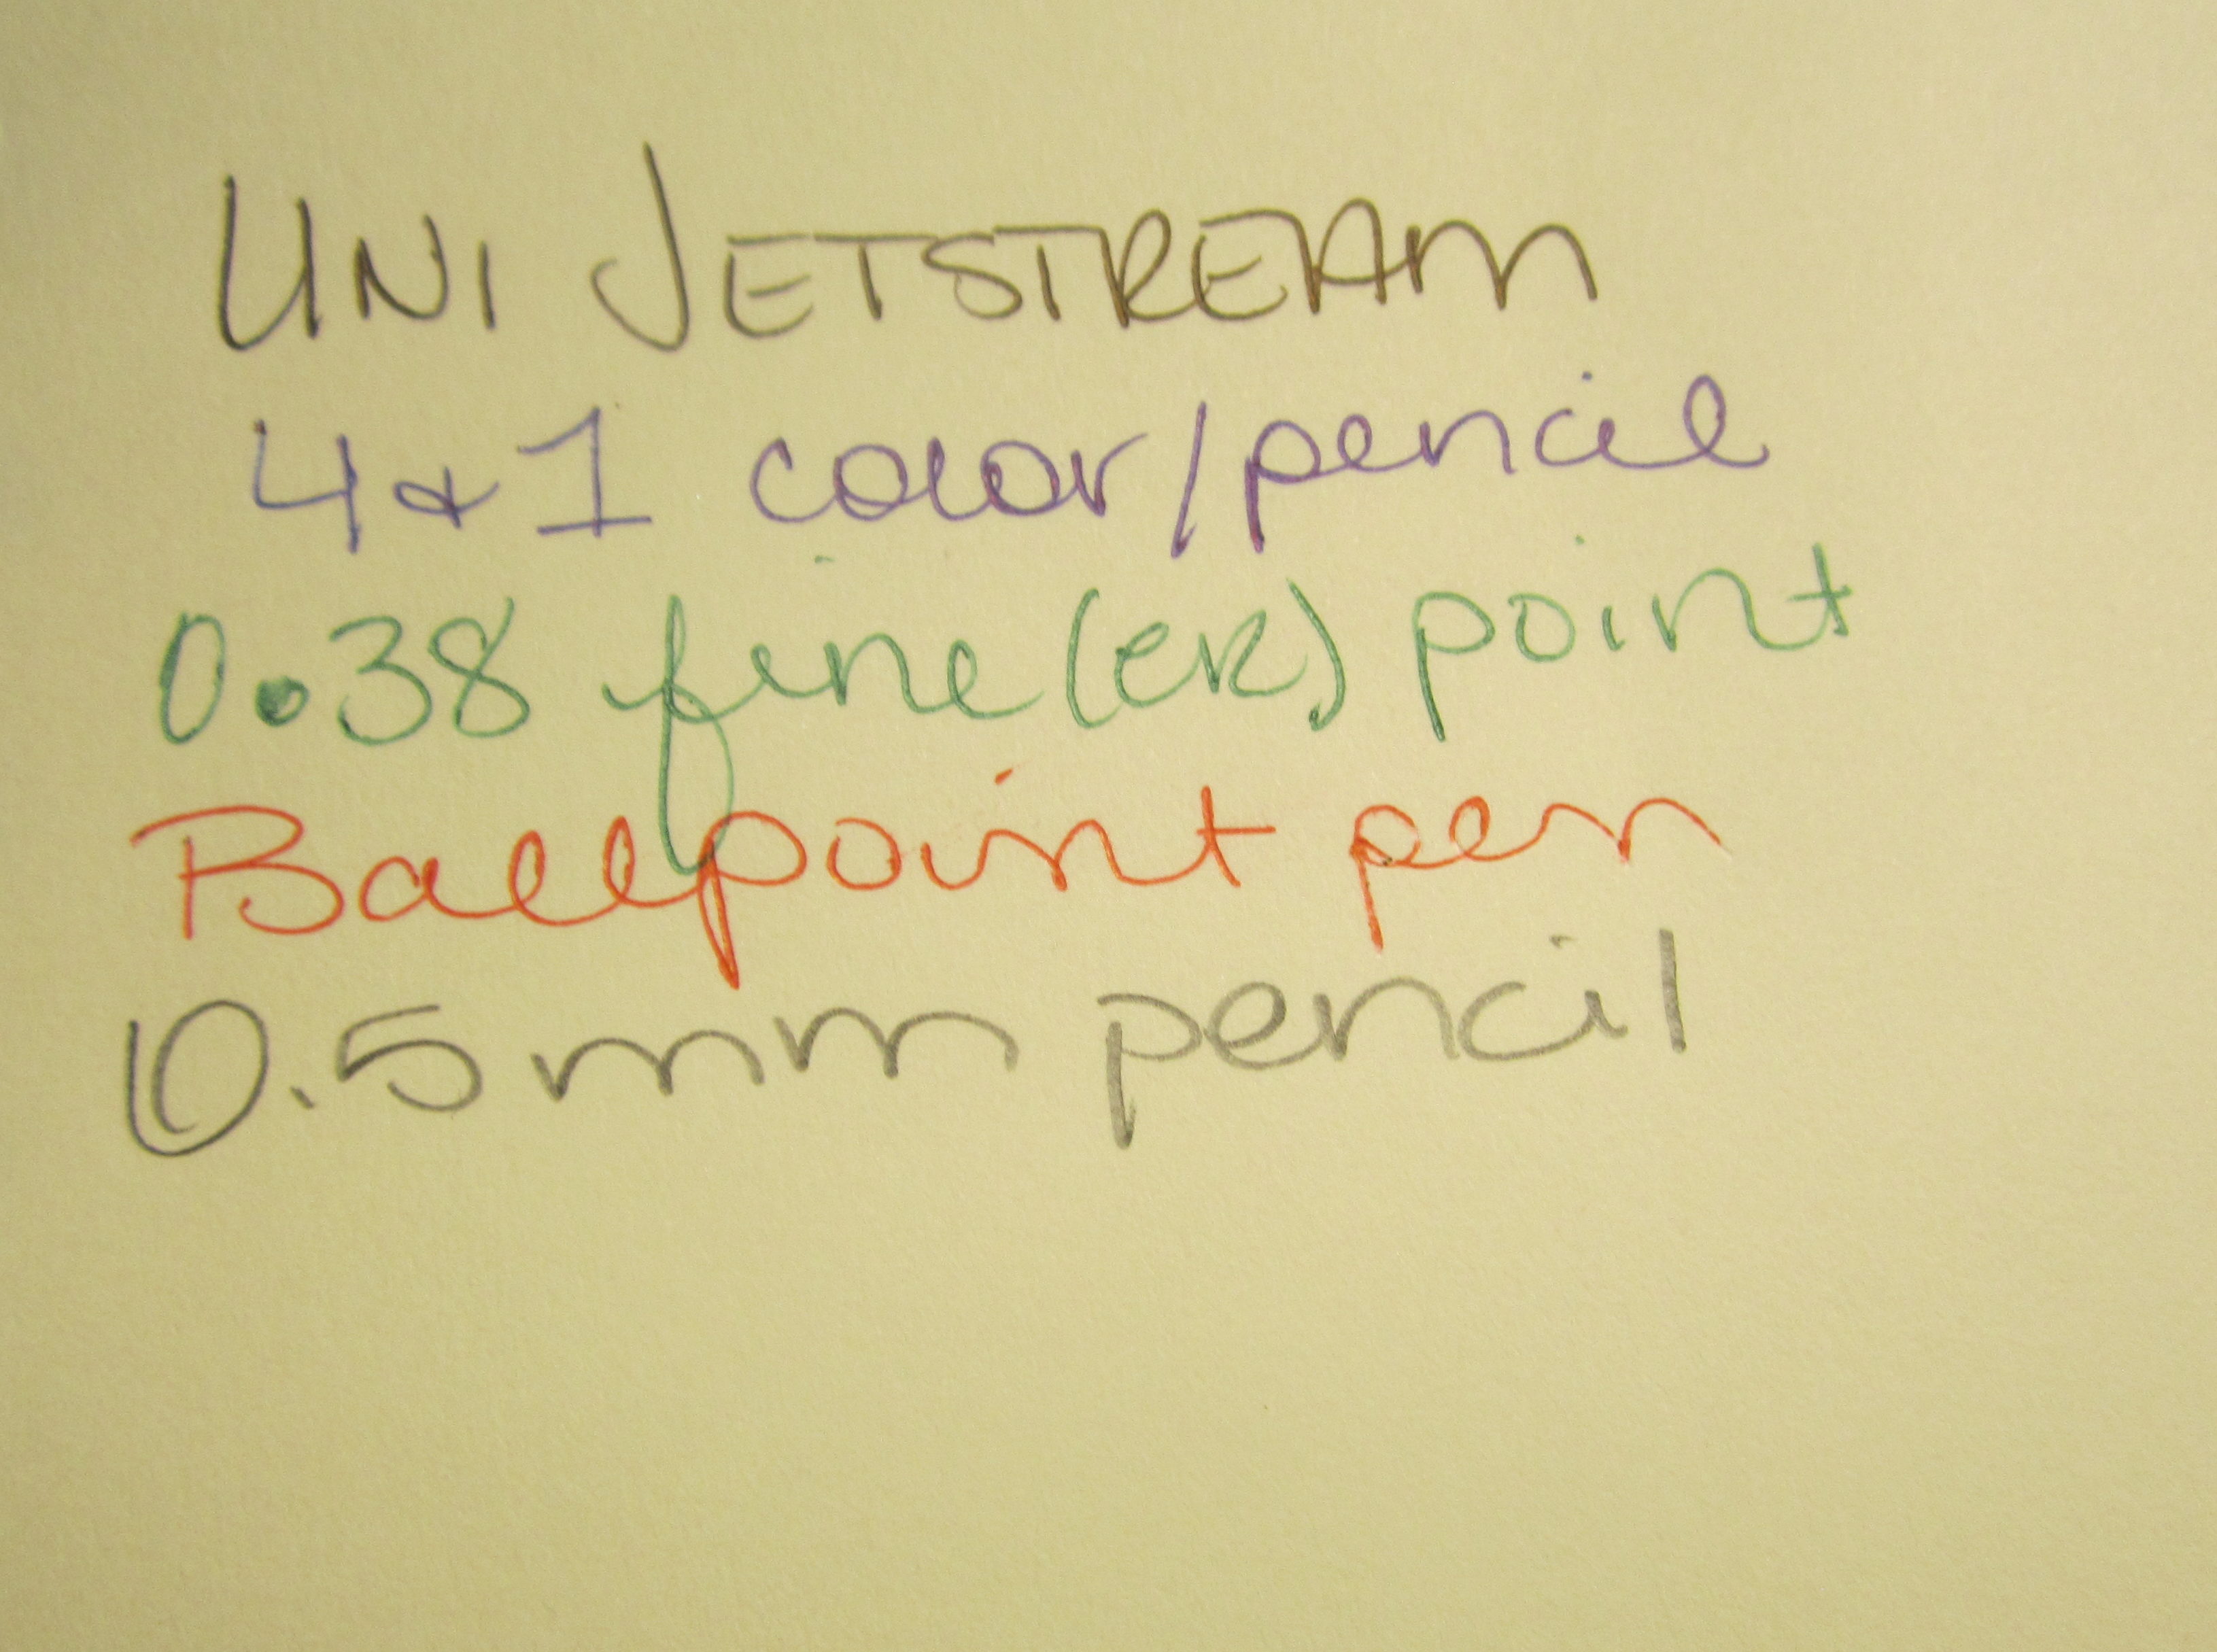 UNI JETSTREAM
4 & 1 color/pencil
0.38 fine(ER) point
Ballpoint pen
0.5mm pencil